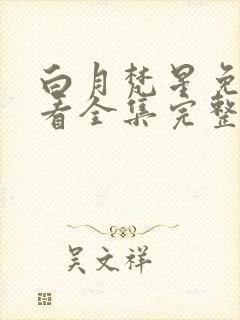 白月梵星免
看全集完整
吴文祥